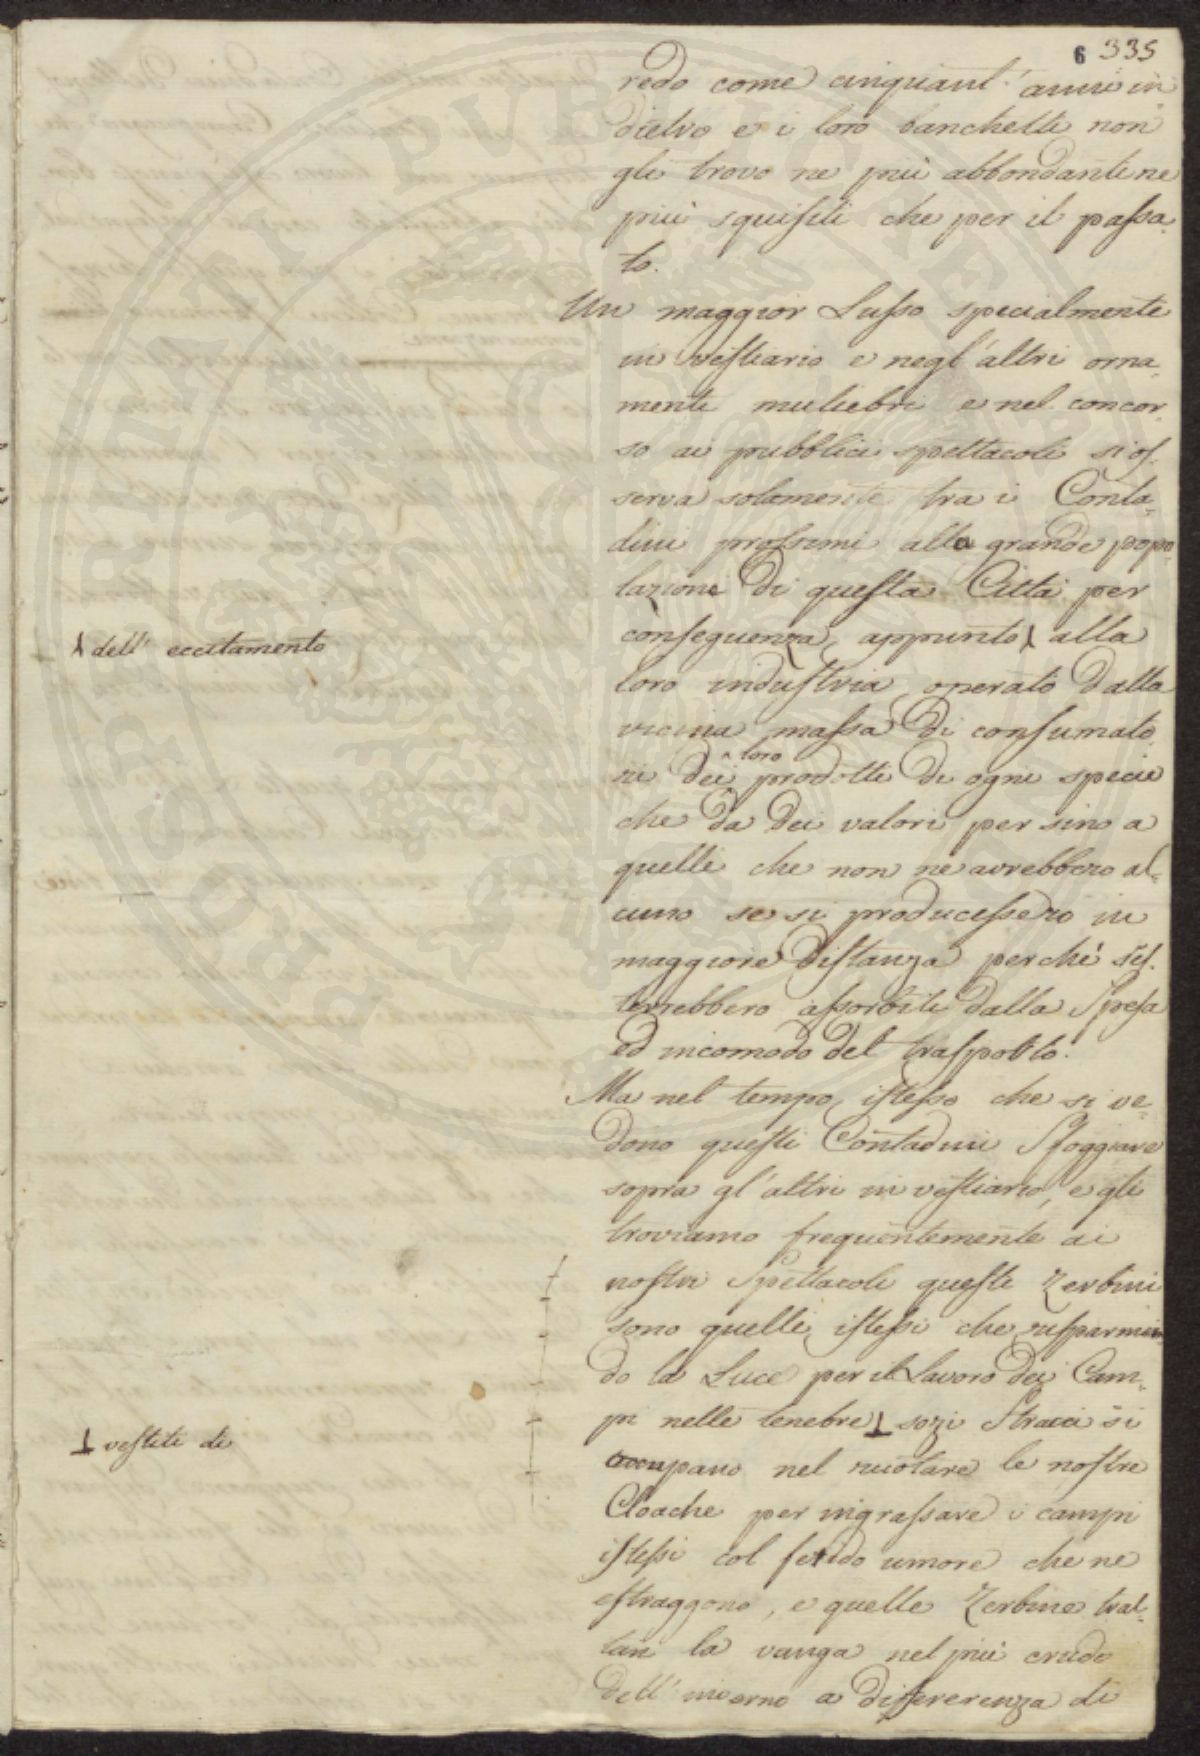 6 335
redo come cinquant' anni in
dietro e i loro banchetti non
gli trovo ne più abbondanti ne
più squisiti che per il passa-
to.
Un maggior Lusso specialmente
in vestiario e negl'altri orna-
menti muliebri e nel concor-
so ai pubblici spettacoli si os-
serva solamente tra i Conta-
dini prossimi alla grande popo
lazione di questa Città per
conseguenza, appunto ⅄ alla
⅄ dell' eccitamento
loro industria operato dalla
vicina massa di consumato
ri dei ^loro prodotti di ogni specie
che da dei valori persino a
quelli che non ne avrebbero al-
cuno se si producessero in
maggiore distanza perchè res-
terebbero assorbiti dalla Spesa
ed incomodo del trasporto.
Ma nel tempo istesso che si ve-
dono questi Contadini Sfoggiare
sopra gl'altri in vestiario, e gli
troviamo frequentemente ai
nostri Spettacoli questi Zerbini
sono quelli istessi che risparmian
do la Luce per il Lavoro dei Cam-
pi nelle tenebre ⊥ sozi Stracci si
⊥ vestiti di
occupano nel vuotare le nostre
Cloache per ingrassare i campi
istessi col fetido umore che ne
estraggono, e quelle Zerbine trat-
tan la vanga nel più crudo
dell'inverno a differerenza di
PERIVATI PVBLICAE